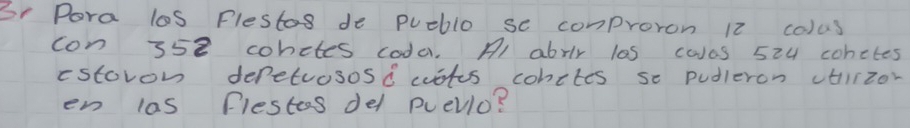 3r Para los Fiestas de Pueblo se comproron 12 cajas
con 352 cohetes cada. Al abrir las cajas 524 cohetes
estavon defetuosos ¿ cuotes cohetes se pudieron utirzor
en las fiestas del puevlo?